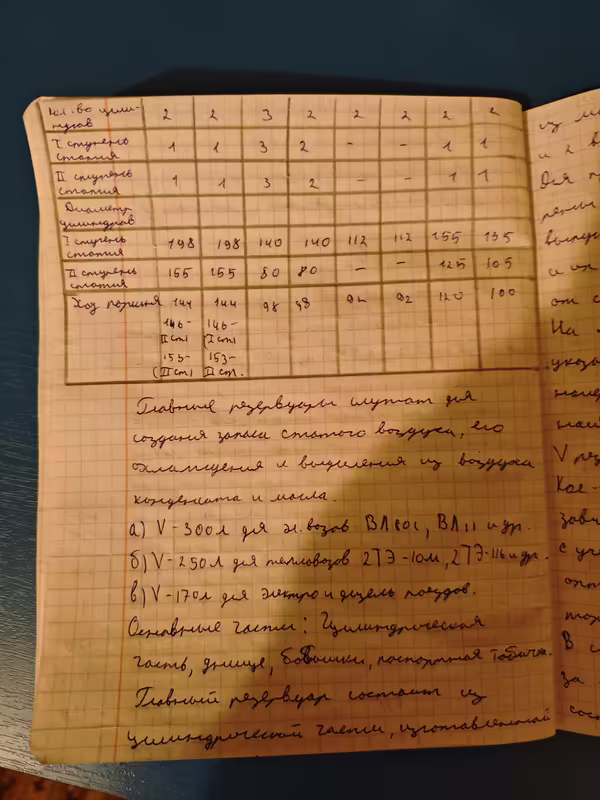 Кол-во цили- 2 2 3 2 2 2 2 2
ндров
I ступень 1 1 3 2 - - 1 1
сжатия
II ступень 1 1 3 2 - - 1 1
сжатия
Диаметр
цилиндров
I ступень 198 198 140 140 112 112 155 135
сжатия
II ступень 155 155 80 80 - - 125 105
сжатия
Ход поршня 144 144 98 98 92 92 120 100
146- 146-
II ст) (I ст)
153- 153-
(II ст) II ст.
Главные резервуары служат для
создания запаса сжатого воздуха, его
охлаждения и выделения из воздуха
конденсата и масла.
а) V-300л для эл.возов ВЛ80с, ВЛ11 и др.
б) V-250л для тепловозов 2ТЭ-10м, 2ТЭ-116 и др.
в) V-170л для электро и дизель поездов.
Основные части: Цилиндрическая
часть, днище, бобышки, паспортная табличка.
Главный резервуар состоит из
цилиндрической части, изготовленной
и 2
Для
и их
от
На
V
Кое-
с
В
за